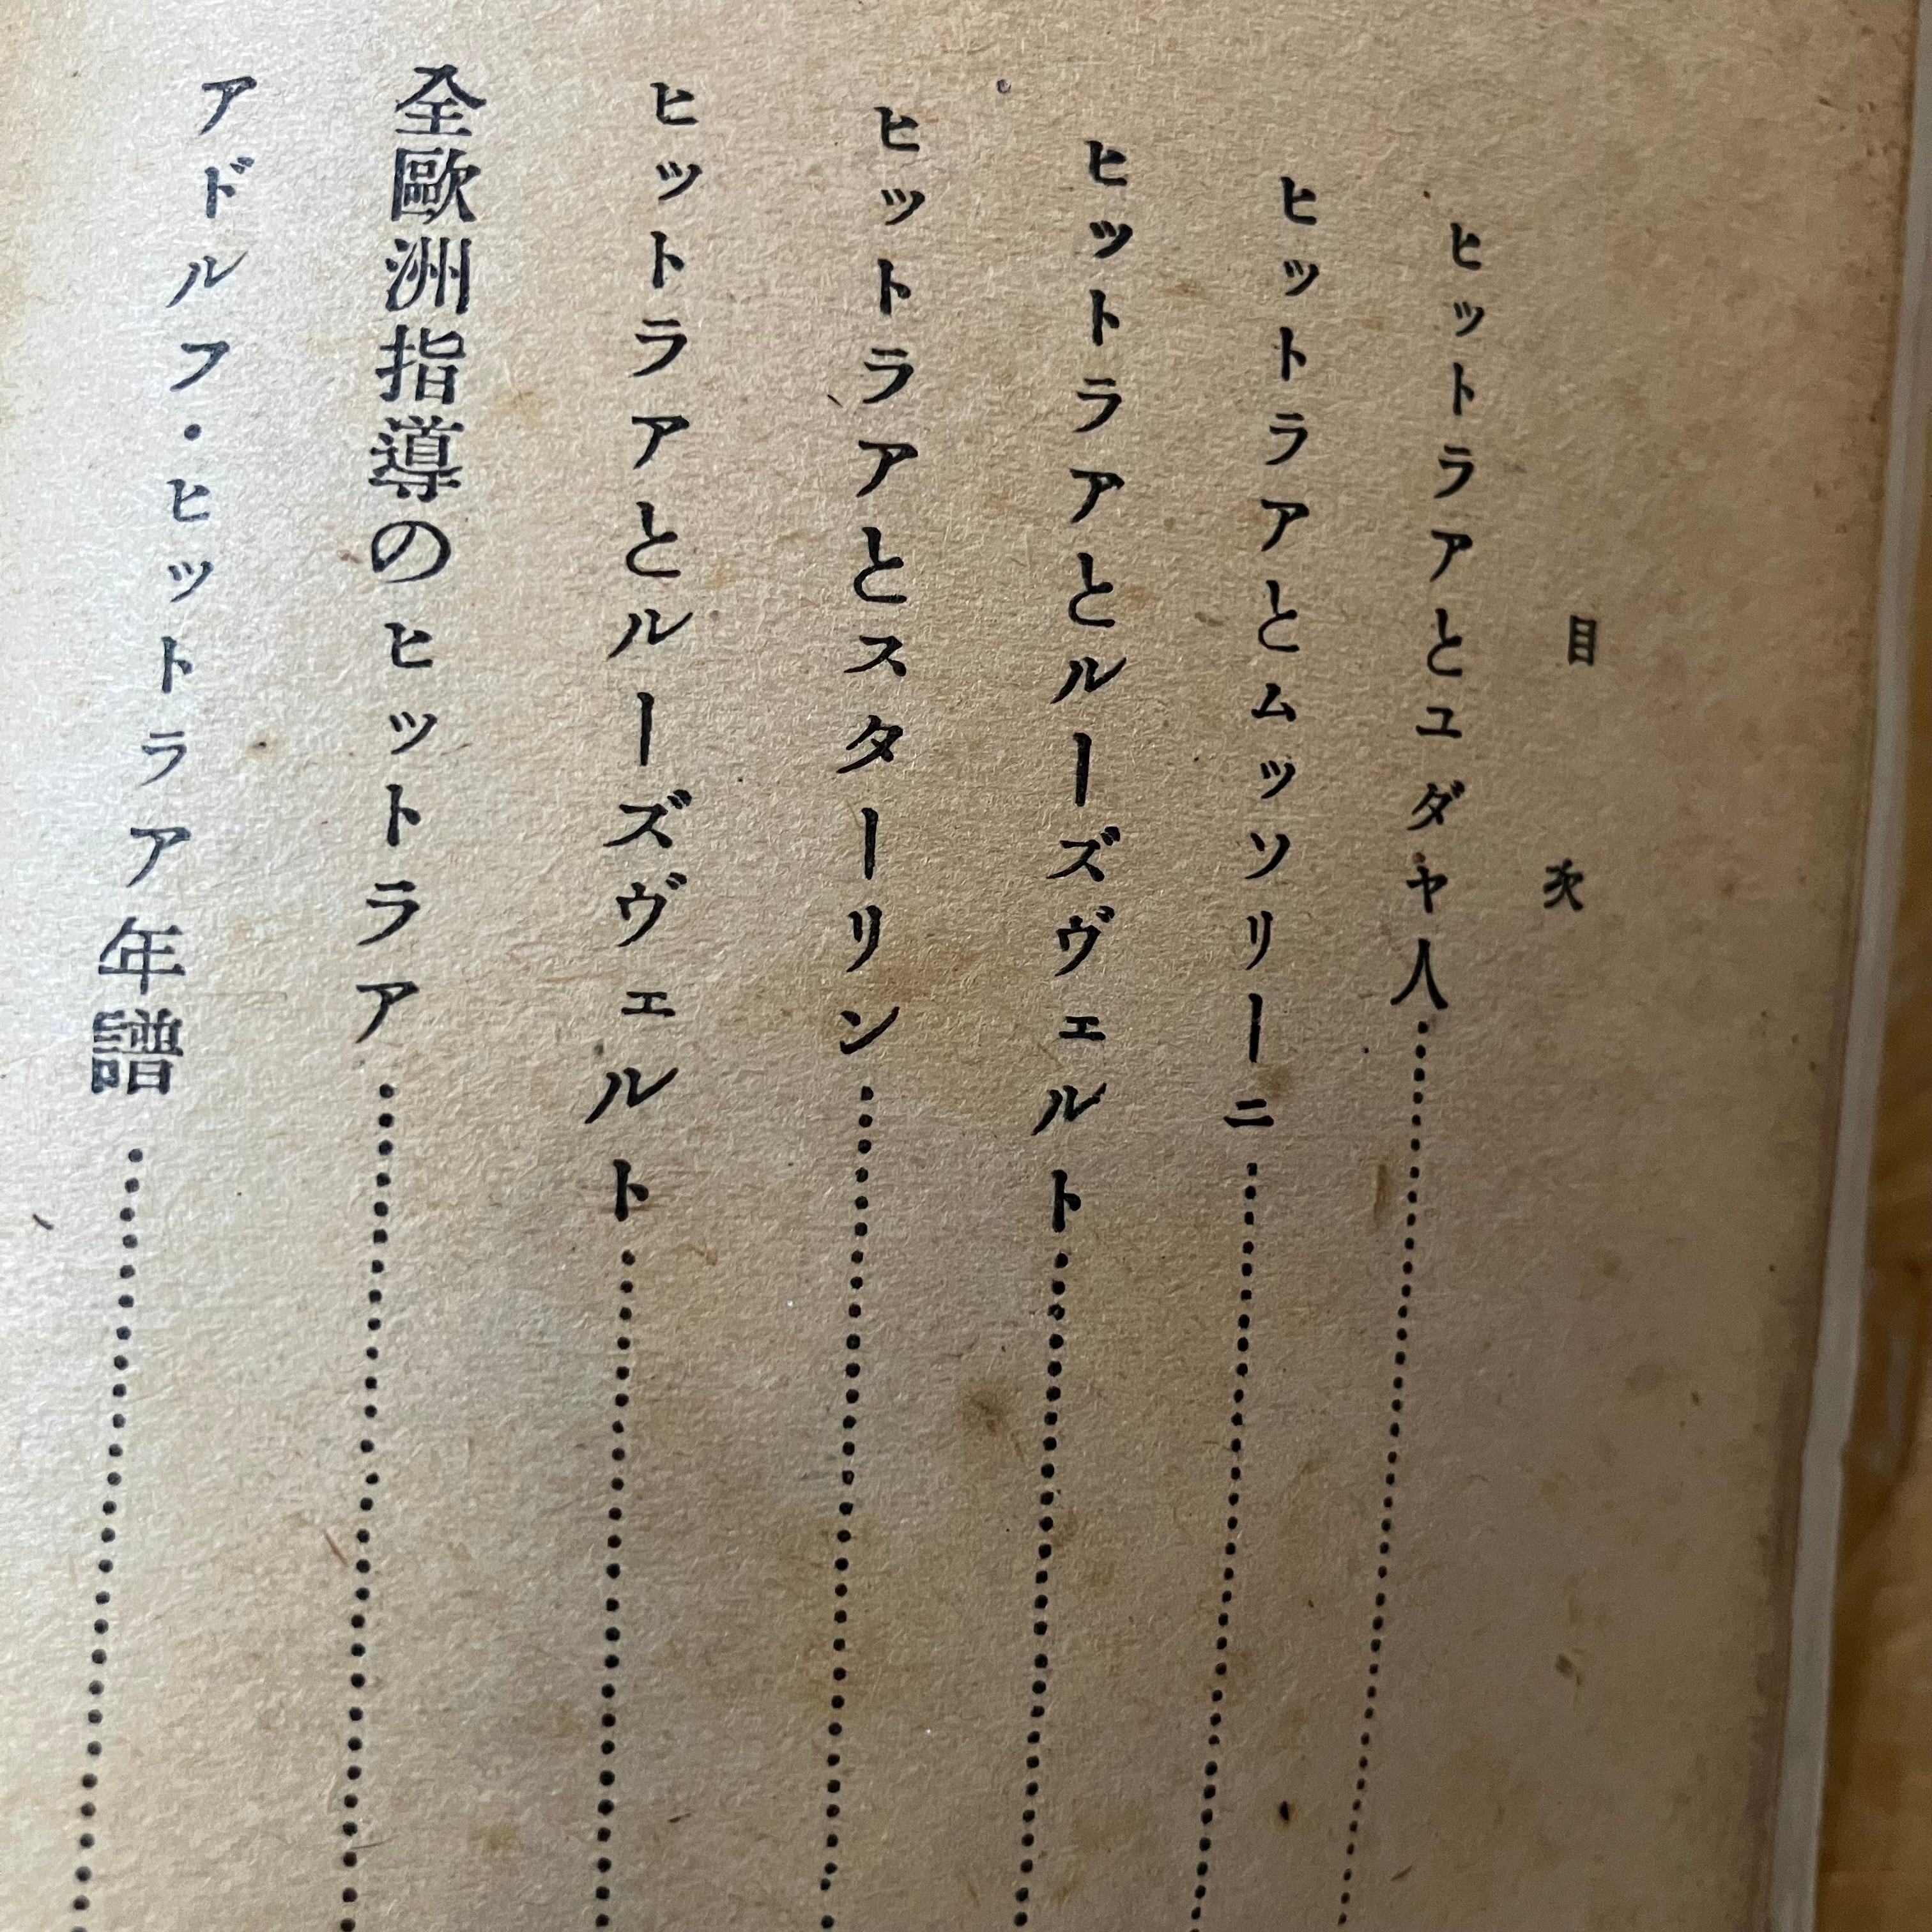 目次
ヒットラアとユダヤ人……
ヒットラアとムッソリーニ……
ヒットラアとルーズヴェルト……
ヒットラアとスターリン……
ヒットラアとルーズヴェルト……
全歐洲指導のヒットラア……
アドルフ・ヒットラア年譜……